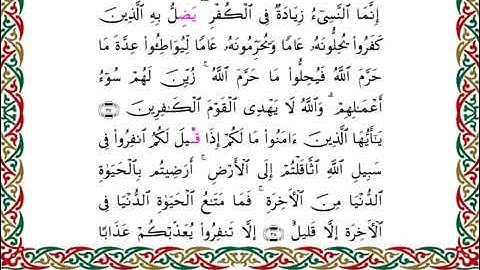 إِنَّمَا ٱلنَّسِىٓءُ زِيَادَةٌ فِى ٱلْكُفْرِ يَضِلُّ بِهِ ٱلَّذِينَ
كَفَرُوا۟ يُحِلُّونَهُۥ عَامًا وَيُحَرِّمُونَهُۥ عَامًا لِّيُوَاطِـُٔوا۟ عِدَّةَ مَا
حَرَّمَ ٱللَّهُ فَيُحِلُّوا۟ مَا حَرَّمَ ٱللَّهُ ۚ زُيِّنَ لَهُمْ سُوٓءُ
أَعْمَـٰلِهِمْ ۗ وَٱللَّهُ لَا يَهْدِى ٱلْقَوْمَ ٱلْكَـٰفِرِينَ ٣٧
يَـٰٓأَيُّهَا ٱلَّذِينَ ءَامَنُوا۟ مَا لَكُمْ إِذَا قِيلَ لَكُمُ ٱنفِرُوا۟ فِى
سَبِيلِ ٱللَّهِ ٱثَّاقَلْتُمْ إِلَى ٱلْأَرْضِ ۚ أَرَضِيتُم بِٱلْحَيَوٰةِ
ٱلدُّنْيَا مِنَ ٱلْـَٔاخِرَةِ ۚ فَمَا مَتَـٰعُ ٱلْحَيَوٰةِ ٱلدُّنْيَا فِى
ٱلْـَٔاخِرَةِ إِلَّا قَلِيلٌ ٣٨ إِلَّا تَنفِرُوا۟ يُعَذِّبْكُمْ عَذَابًا